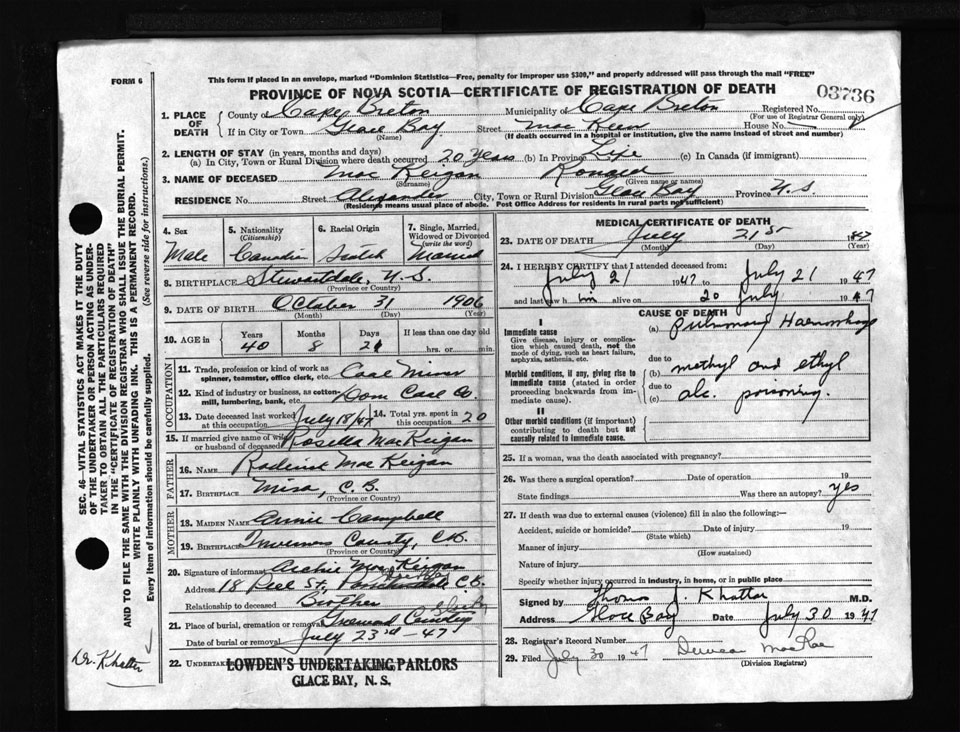 FORM 6
This form if placed in an envelope, marked "Dominion Statistics—Free, penalty for improper use $300," and properly addressed will pass through the mail "FREE"
PROVINCE OF NOVA SCOTIA—CERTIFICATE OF REGISTRATION OF DEATH
03736
1. PLACE OF DEATH
County of Cape Breton Municipality of Cape Breton Registered No.
(For use of Registrar General only)
If in City or Town Glace Bay Street MacKeen House No.
(Name) (If death occurred in a hospital or institution, give the name instead of street and number)
2. LENGTH OF STAY (in years, months and days)
(a) In City, Town or Rural Division where death occurred 20 Years (b) In Province Life (c) In Canada (if immigrant)
3. NAME OF DECEASED MacKeigan Ronald
(Surname) (Given name or names)
RESIDENCE No. Street Alexander City, Town or Rural Division Glace Bay Province N.S.
(Residence means usual place of abode. Post Office Address for residents in rural parts not sufficient)
4. Sex Male
5. Nationality (Citizenship) Canadian
6. Racial Origin Scotch
7. Single, Married, Widowed or Divorced (write the word) Married
8. BIRTHPLACE Stewartdale, N.S.
(Province or Country)
9. DATE OF BIRTH October 31 1906
(Month) (Day) (Year)
10. AGE in Years Months Days If less than one day old
40 8 21 hrs. or min.
OCCUPATION
11. Trade, profession or kind of work as spinner, teamster, office clerk, etc. Coal Miner
12. Kind of industry or business, as cotton mill, lumbering, bank, etc. Dom Coal Co.
13. Date deceased last worked at this occupation July 18/47
14. Total yrs. spent in this occupation 20
15. If married give name of wife or husband of deceased Rosella MacKeigan
FATHER
16. NAME MacKeigan
17. BIRTHPLACE Mira, C.B.
(Province or Country)
MOTHER
18. MAIDEN NAME Annie Campbell
19. BIRTHPLACE Inverness County, C.B.
(Province or Country)
20. Signature of informant Archie MacKeigan
Address 18 Peel St., C.B.
Relationship to deceased Brother
21. Place of burial, cremation or removal
Date of burial or removal July 23rd - 47
22. UNDERTAKER LOWDEN'S UNDERTAKING PARLORS
GLACE BAY, N. S.
MEDICAL CERTIFICATE OF DEATH
23. DATE OF DEATH July 21st 1947
(Month) (Day) (Year)
24. I HEREBY CERTIFY that I attended deceased from:
July 21 1947 to July 21 1947
and last saw h im alive on 20 July 1947
CAUSE OF DEATH
I
Immediate cause
Give disease, injury or complication which caused death, not the mode of dying, such as heart failure, asphyxia, asthenia, etc.
(a) Pulmonary Haemorrhage
due to
Morbid conditions, if any, giving rise to immediate cause (stated in order proceeding backwards from immediate cause).
(b) methyl and ethyl
due to
(c) alc. poisoning.
II
Other morbid conditions (if important) contributing to death but not causally related to immediate cause.
25. If a woman, was the death associated with pregnancy?
26. Was there a surgical operation? Date of operation 19
State findings Was there an autopsy? yes
27. If death was due to external causes (violence) fill in also the following:-
Accident, suicide or homicide? Date of injury 19
(State which)
Manner of injury
(How sustained)
Nature of injury
Specify whether injury occurred in industry, in home, or in public place
Signed by Thomas J. Khattar M.D.
Address Glace Bay Date July 30 1947
28. Registrar's Record Number
29. Filed July 30 1947 Duncan MacRae
(Division Registrar)
SEC. 46—VITAL STATISTICS ACT MAKES IT THE DUTY
OF THE UNDERTAKER OR PERSON ACTING AS UNDER-
TAKER TO OBTAIN ALL THE PARTICULARS REQUIRED
IN THE "CERTIFICATE OF REGISTRATION OF DEATH"
AND TO FILE THE SAME WITH THE DIVISION REGISTRAR WHO SHALL ISSUE THE BURIAL PERMIT.
WRITE PLAINLY WITH UNFADING INK. THIS IS A PERMANENT RECORD.
Every item of information should be carefully supplied. (See reverse side for instructions.)
Dr. Khattar